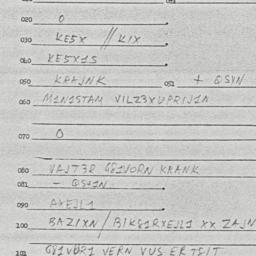 020 O
030 KE5X // KIX
040 KE5X1S
050 KRAJNK 051 + QSYN
060 M1N1STAM VILZ3XUPRIJ1A
070 O
080 VAJT3R G81VORN KRANK
081
090 AXEJL1
100 BAZIXN / BIK51RXEJL1 XX ZAJN
101 G81VOR1 VERN VUS ER TSIT